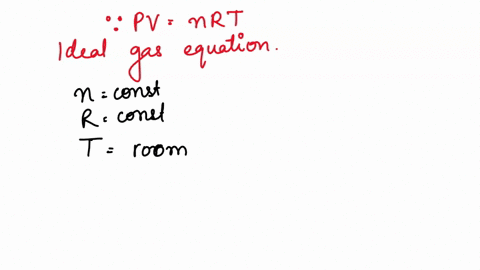 ∵ PV = nRT
Ideal gas equation.
n = const
R = const
T = room